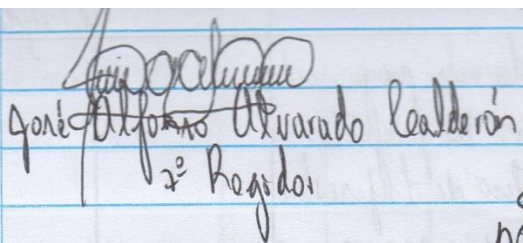 José Alfonso Alvarado Calderón
7º Regidor